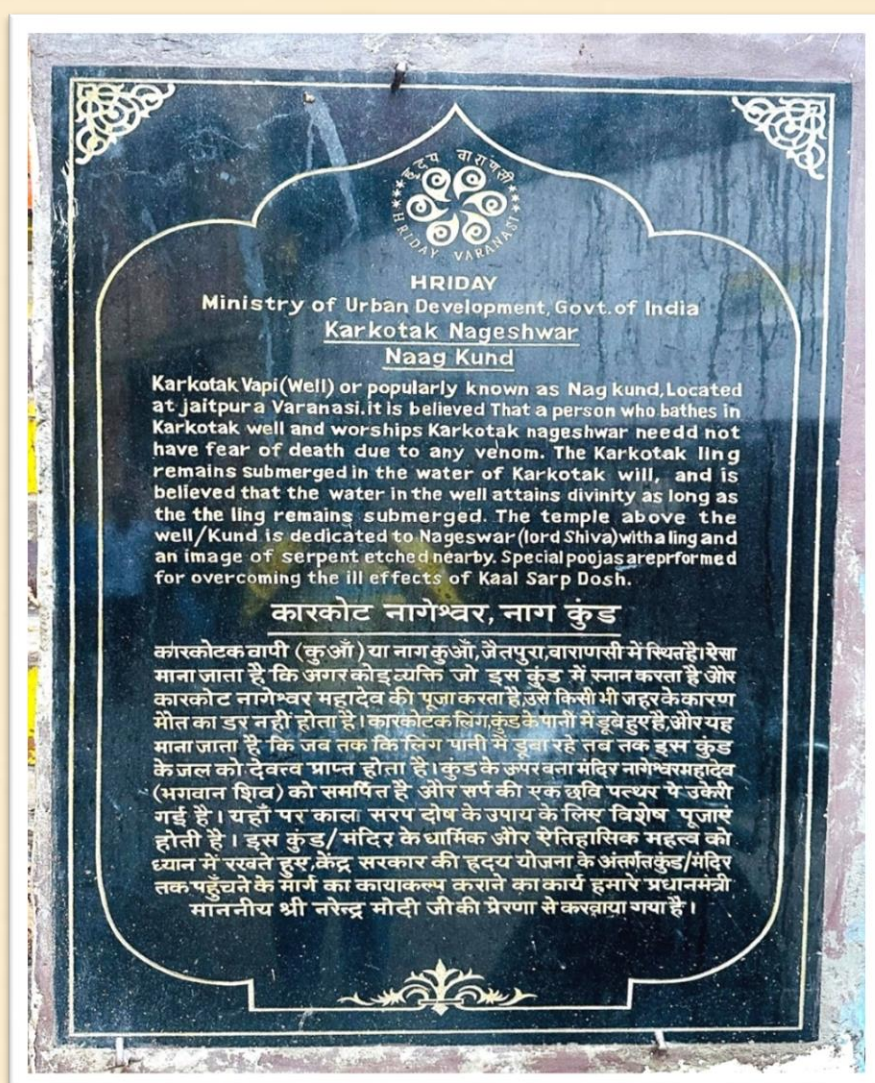 हृदय वाराणसी
HRIDAY VARANASI
HRIDAY
Ministry of Urban Development, Govt. of India
Karkotak Nageshwar
Naag Kund
Karkotak Vapi (Well) or popularly known as Nag kund, Located
at jaitpura Varanasi. it is believed That a person who bathes in
Karkotak well and worships Karkotak nageshwar needd not
have fear of death due to any venom. The Karkotak ling
remains submerged in the water of Karkotak will, and is
believed that the water in the well attains divinity as long as
the the ling remains submerged. The temple above the
well/Kund is dedicated to Nageswar (lord Shiva) with a ling and
an image of serpent etched nearby. Special poojas are prformed
for overcoming the ill effects of Kaal Sarp Dosh.
कारकोट नागेश्वर, नाग कुंड
कारकोटक वापी (कुआँ) या नाग कुआँ, जैतपुरा, वाराणसी में स्थित है। ऐसा
माना जाता है कि अगर कोइ व्यक्ति जो इस कुंड में स्नान करता है और
कारकोट नागेश्वर महादेव की पूजा करता है, उसे किसी भी जहर के कारण
मौत का डर नहीं होता है। कारकोटक लिंग, कुंड के पानी में डूबे हुए है, और यह
माना जाता है कि जब तक कि लिंग पानी में डूबा रहे तब तक इस कुंड
के जल को देवत्व प्राप्त होता है। कुंड के ऊपर बना मंदिर नागेश्वर महादेव
(भगवान शिव) को समर्पित है और सर्प की एक छवि पत्थर पे उकेरी
गई है। यहाँ पर काला सरप दोष के उपाय के लिए विशेष पूजाएं
होती है। इस कुंड/मंदिर के धार्मिक और ऐतिहासिक महत्व को
ध्यान में रखते हुए, केंद्र सरकार की हृदय योजना के अंतर्गत कुंड/मंदिर
तक पहुँचने के मार्ग का कायाकल्प कराने का कार्य हमारे प्रधानमंत्री
माननीय श्री नरेन्द्र मोदी जी की प्रेरणा से करवाया गया है।